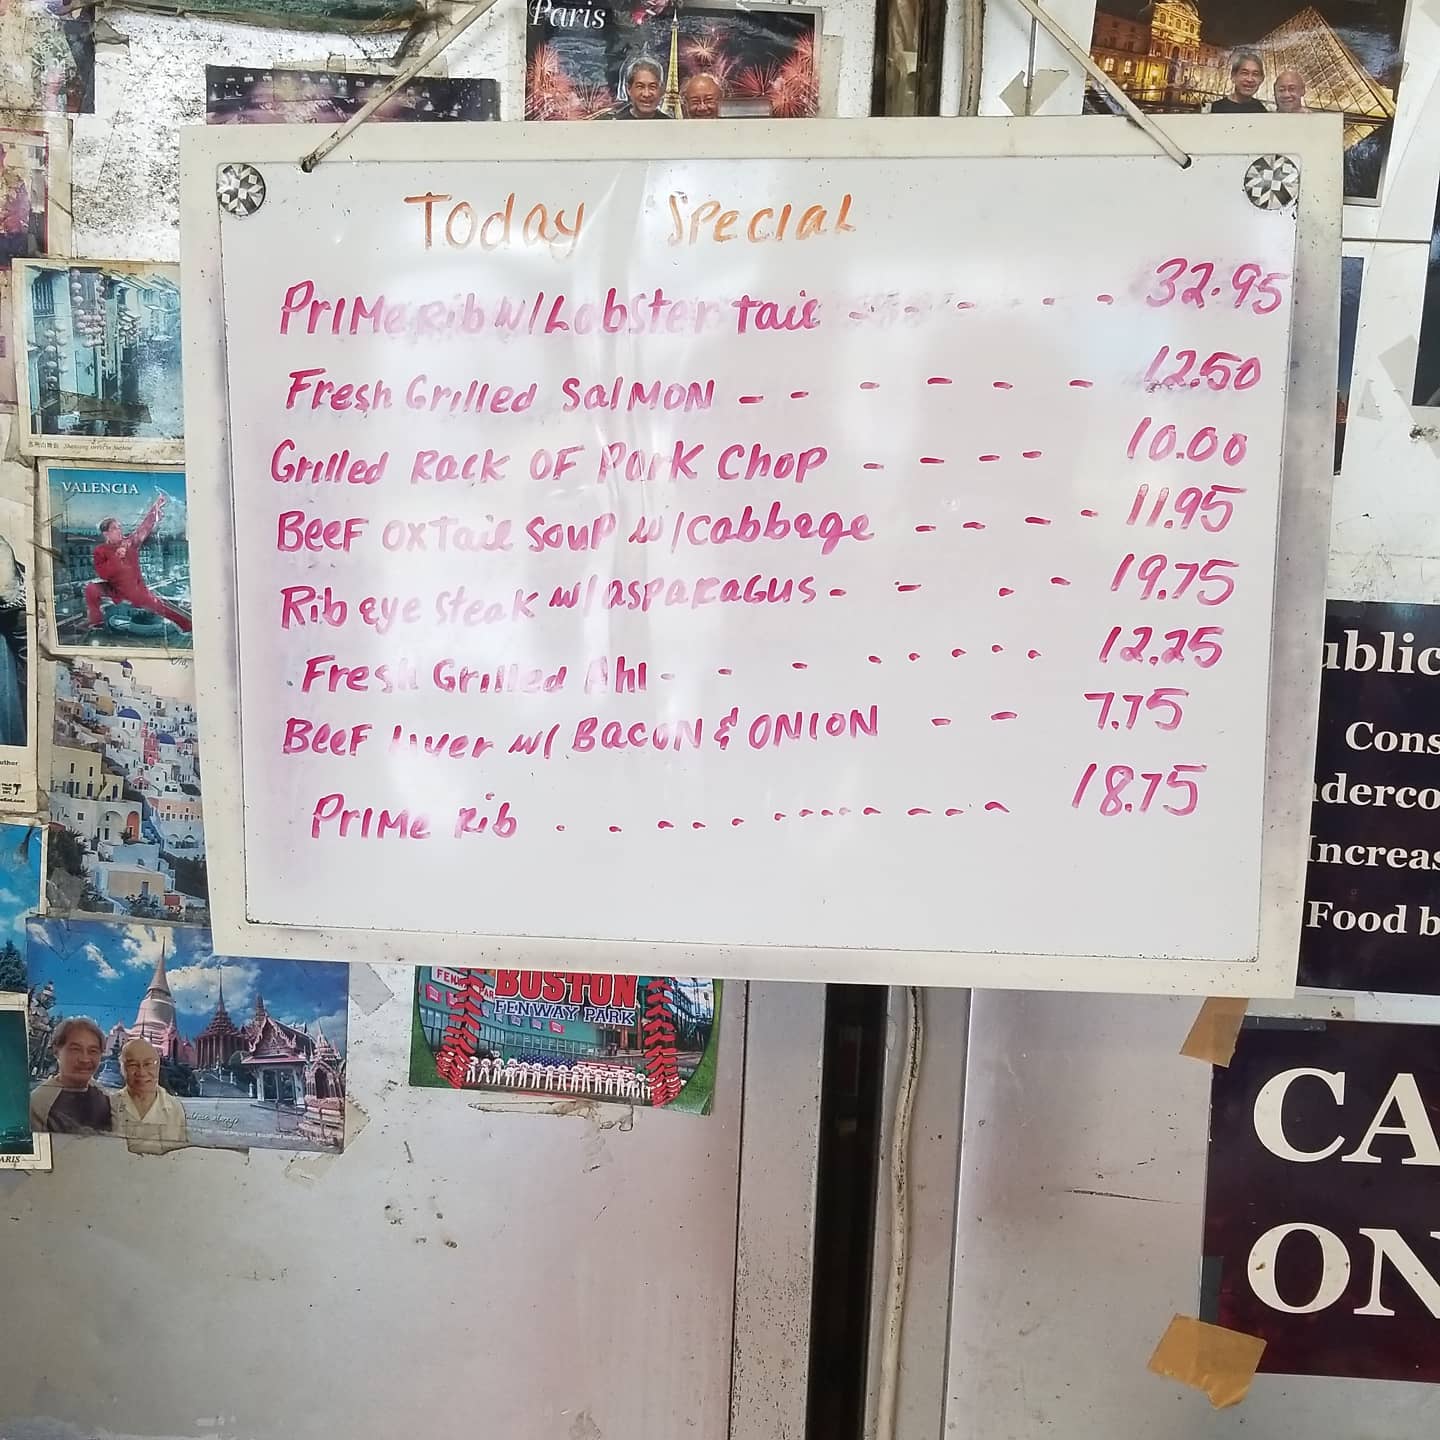 Paris
Today Special
Prime Rib w/ Lobster tail -- - - - - 32.95
Fresh Grilled Salmon -- - - - - 12.50
Grilled Rack OF Pork Chop - - - - 10.00
Beef oxtail soup w/cabbage - - - - 11.95
Rib eye steak w/asparagus - - - - 19.75
Fresh Grilled Ahi - - - - - - - - 12.25
Beef Liver w/ Bacon & ONION - - 7.75
Prime Rib . . - - - ..... - - - - 18.75
VALENCIA
BOSTON
FENWAY PARK
PARIS
ublic
Cons
nderco
Increas
Food b
CA
ON